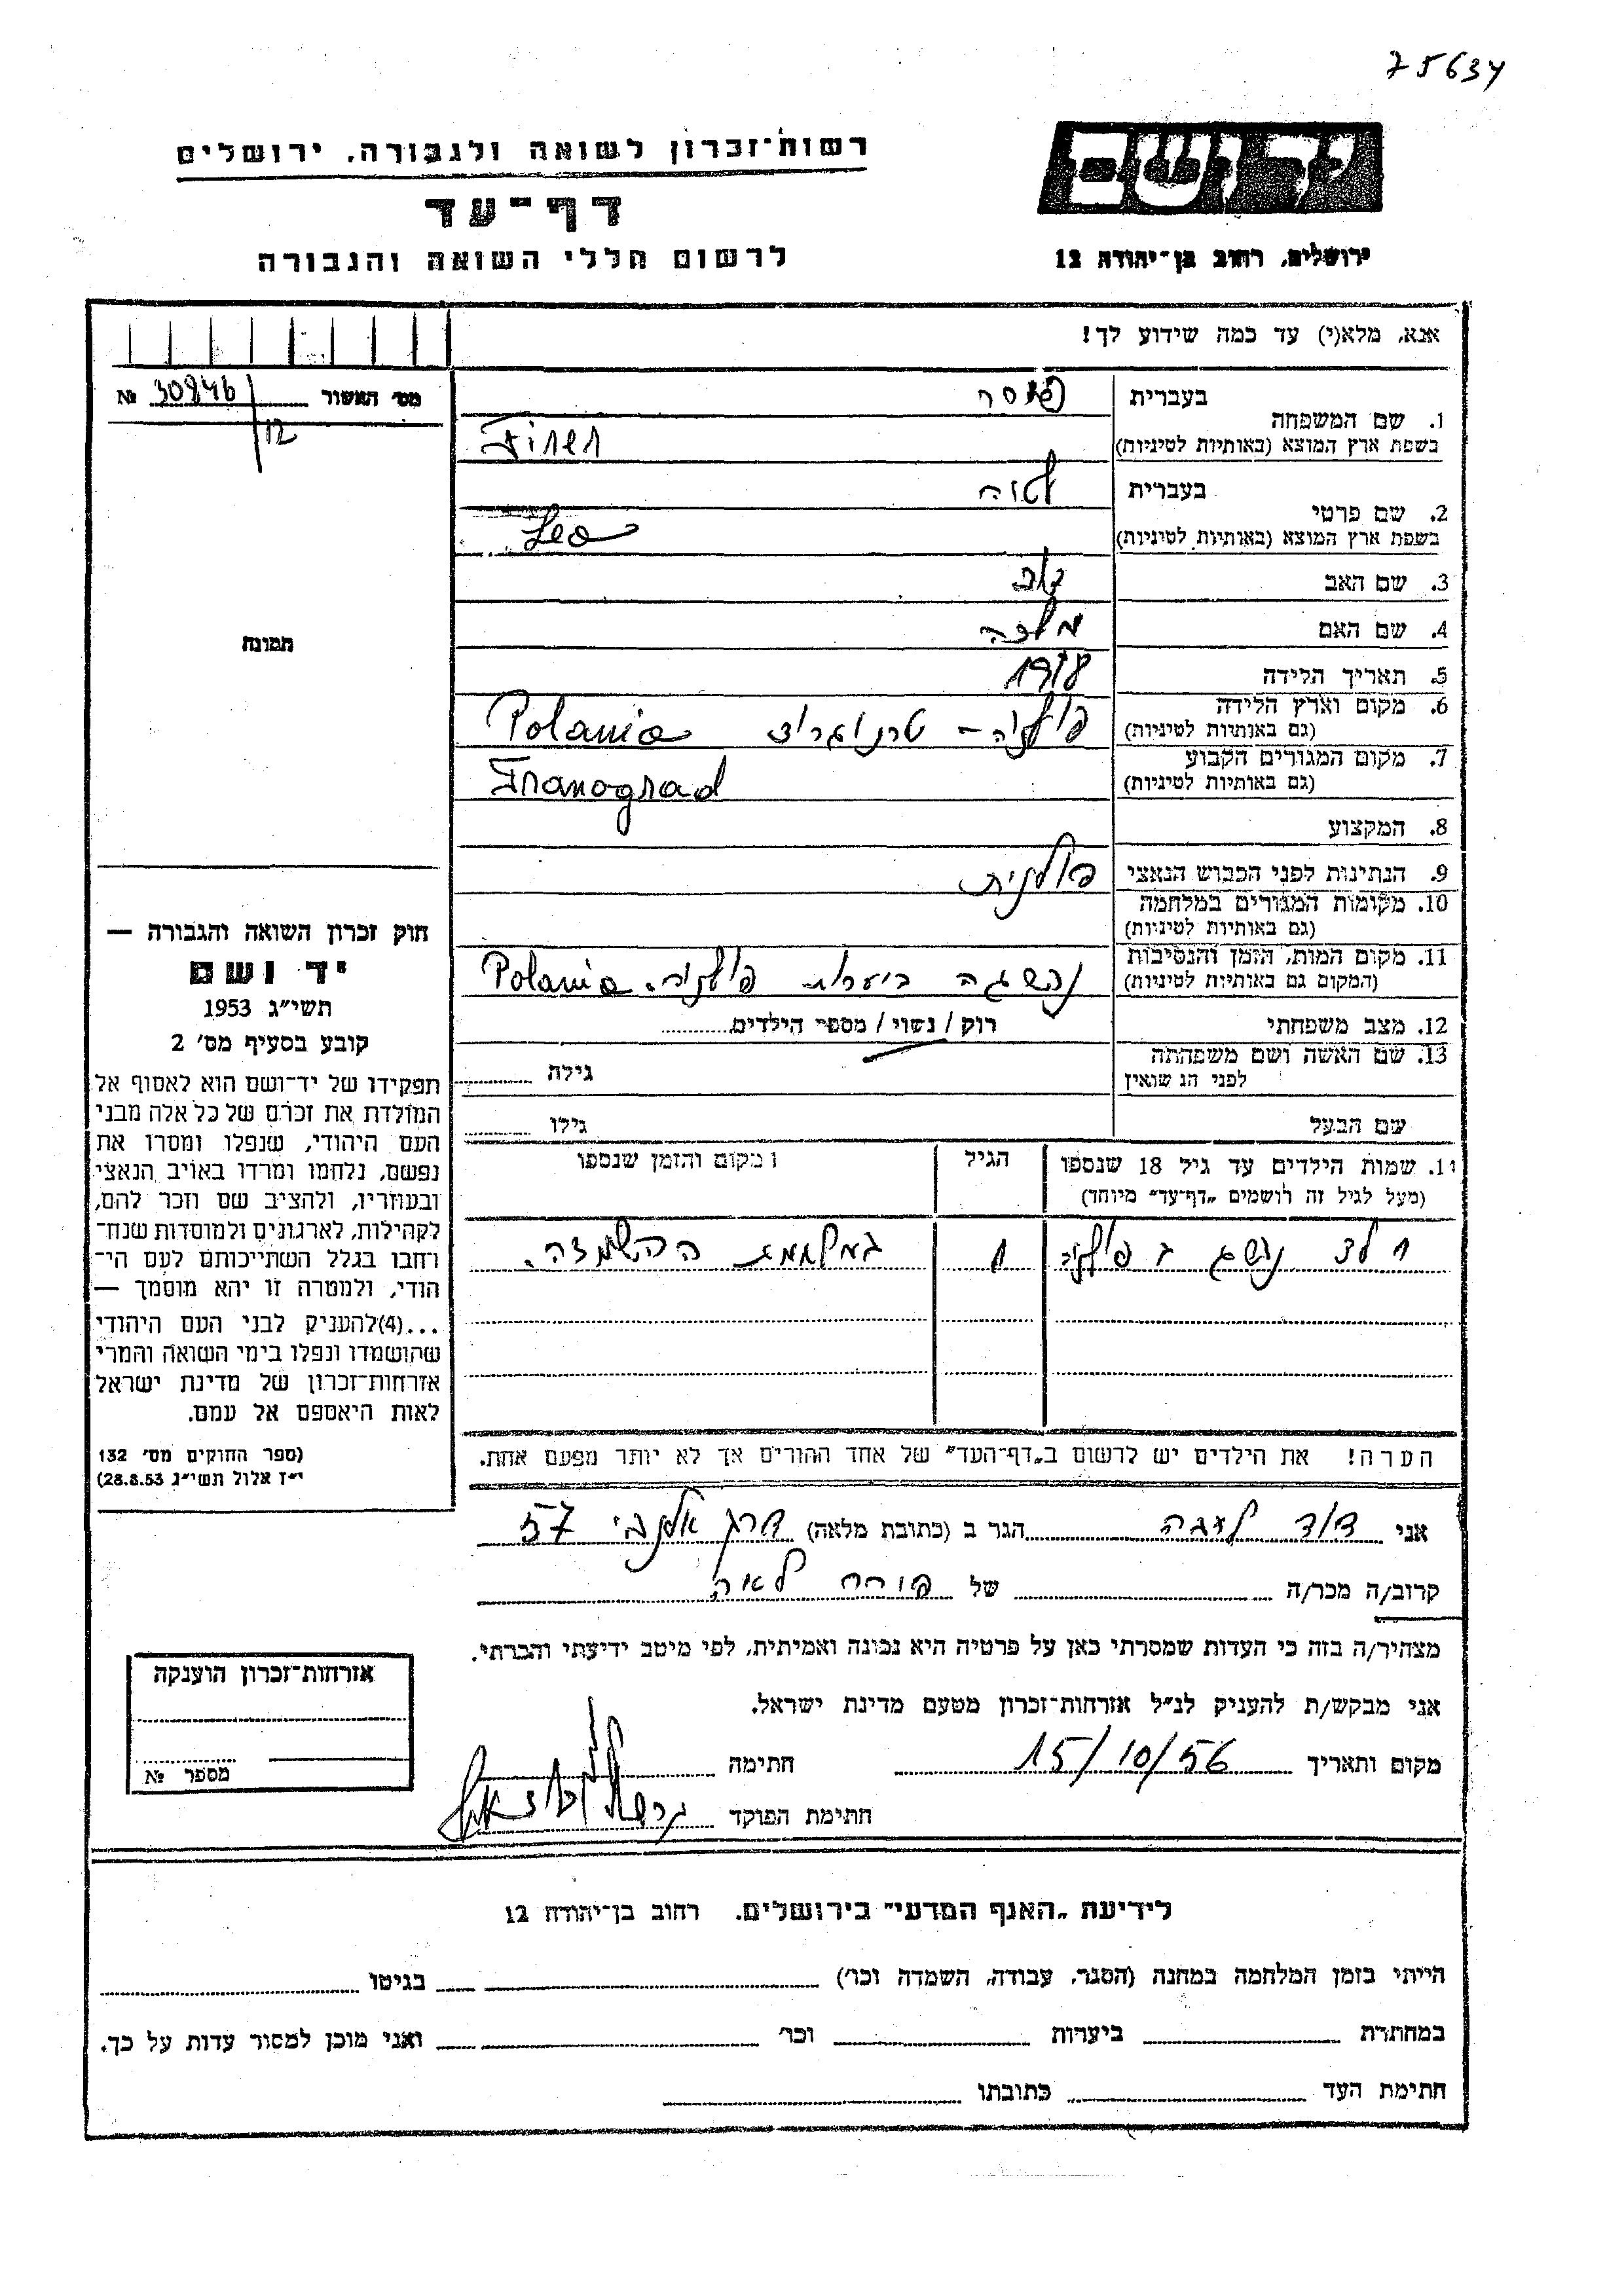 75634
רשות־זכרון לשואה ולגבורה, ירושלים
דף־עד
לרשום חללי השואה והגבורה
יד ושם
ירושלים, רחוב בן־יהודה 12
אנא, מלא(י) עד כמה שידוע לך!
מס׳ האשור № 30846
12
1. שם המשפחה
בעברית
בשפת ארץ המוצא (באותיות לטיניות) Firer
2. שם פרטי
בעברית
בשפת ארץ המוצא (באותיות לטיניות) Leo
3. שם האב
4. שם האם מלכה
5. תאריך הלידה
6. מקום וארץ הלידה פולניה – טרנוגרוד Polania
(גם באותיות לטיניות)
7. מקום המגורים הקבוע Tranograd
(גם באותיות לטיניות)
8. המקצוע
9. הנתינות לפני הכבוש הנאצי פולנית
10. מקומות המגורים במלחמה
(גם באותיות לטיניות)
11. מקום המות, הזמן והנסיבות ביערות פולניה. Polania
(המקום גם באותיות לטיניות)
12. מצב משפחתי רוק / נשוי / מספר הילדים
13. שם האשה ושם משפחתה גילה
לפני הנשואין
שם הבעל גילו
תמונה
חוק זכרון השואה והגבורה —
יד ושם
תשי״ג 1953
קובע בסעיף מס׳ 2
תפקידו של יד־ושם הוא לאסוף אל
המולדת את זכרם של כל אלה מבני
העם היהודי, שנפלו ומסרו את
נפשם, נלחמו ומרדו באויב הנאצי
ובעוזריו, ולהציב שם וזכר להם,
לקהילות, לארגונים ולמוסדות שנח־
רחבו בגלל השתייכותם לעם הי־
הודי, ולמטרה זו יהא מוסמך —
...(4)להעניק לבני העם היהודי
שהושמדו ונפלו בימי השואה והמרי
אזרחות־זכרון של מדינת ישראל
לאות היאספם אל עמם.
(ספר החוקים מס׳ 132
י״ז אלול תשי״ג 28.8.53)
שמות הילדים עד גיל 18 שנספו הגיל מקום והזמן שנספו
(מעל לגיל זה רושמים „דף־עד״ מיוחד)
ילד בפולניה 1 במלחמת ההשמדה.
הערה! את הילדים יש לרשום ב„דף־העד״ של אחד ההורים אך לא יותר מפעם אחת.
אני דוד הגר ב (כתובת מלאה) דרך אלנבי 57
קרוב/ה מכר/ה של לאה
מצהיר/ה בזה כי העדות שמסרתי כאן על פרטיה היא נכונה ואמיתית, לפי מיטב ידיעתי והכרתי.
אני מבקש/ת להעניק לנ״ל אזרחות־זכרון מטעם מדינת ישראל.
מקום ותאריך 15/10/56 חתימה
חתימת הפוקד
אזרחות־זכרון הוענקה
מספר №
לידיעת „האגף המדעי״ בירושלים. רחוב בן־יהודה 12
הייתי בזמן המלחמה במחנה (הסגר, עבודה, השמדה וכו׳) בגיטו
במחתרת ביערות וכו׳ ואני מוכן למסור עדות על כך.
חתימת העד כתובתו